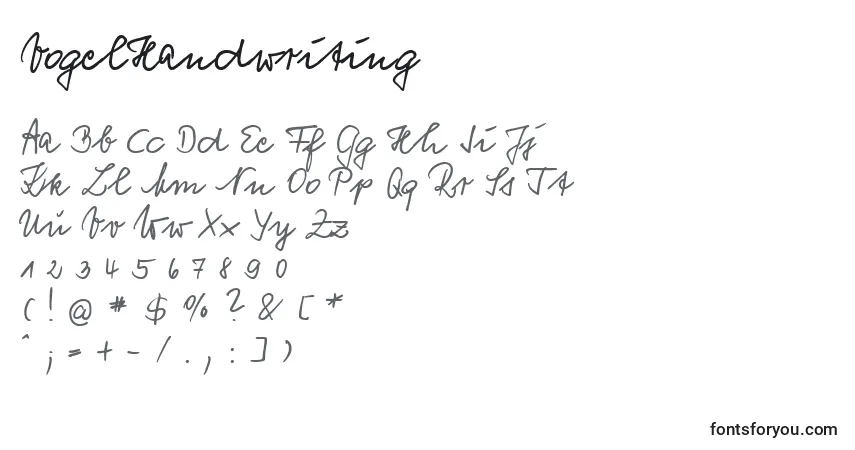 VogelHandwriting
Aa Bb Cc Dd Ee Ff Gg Hh Ii Jj
Kk Ll Mm Nn Oo Pp Qq Rr Ss Tt
Uu Vv Ww Xx Yy Zz
1 2 3 4 5 6 7 8 9 0
( ! @ # $ % ? & [ *
^ ; = + - / . , : ] )
fontsforyou.com